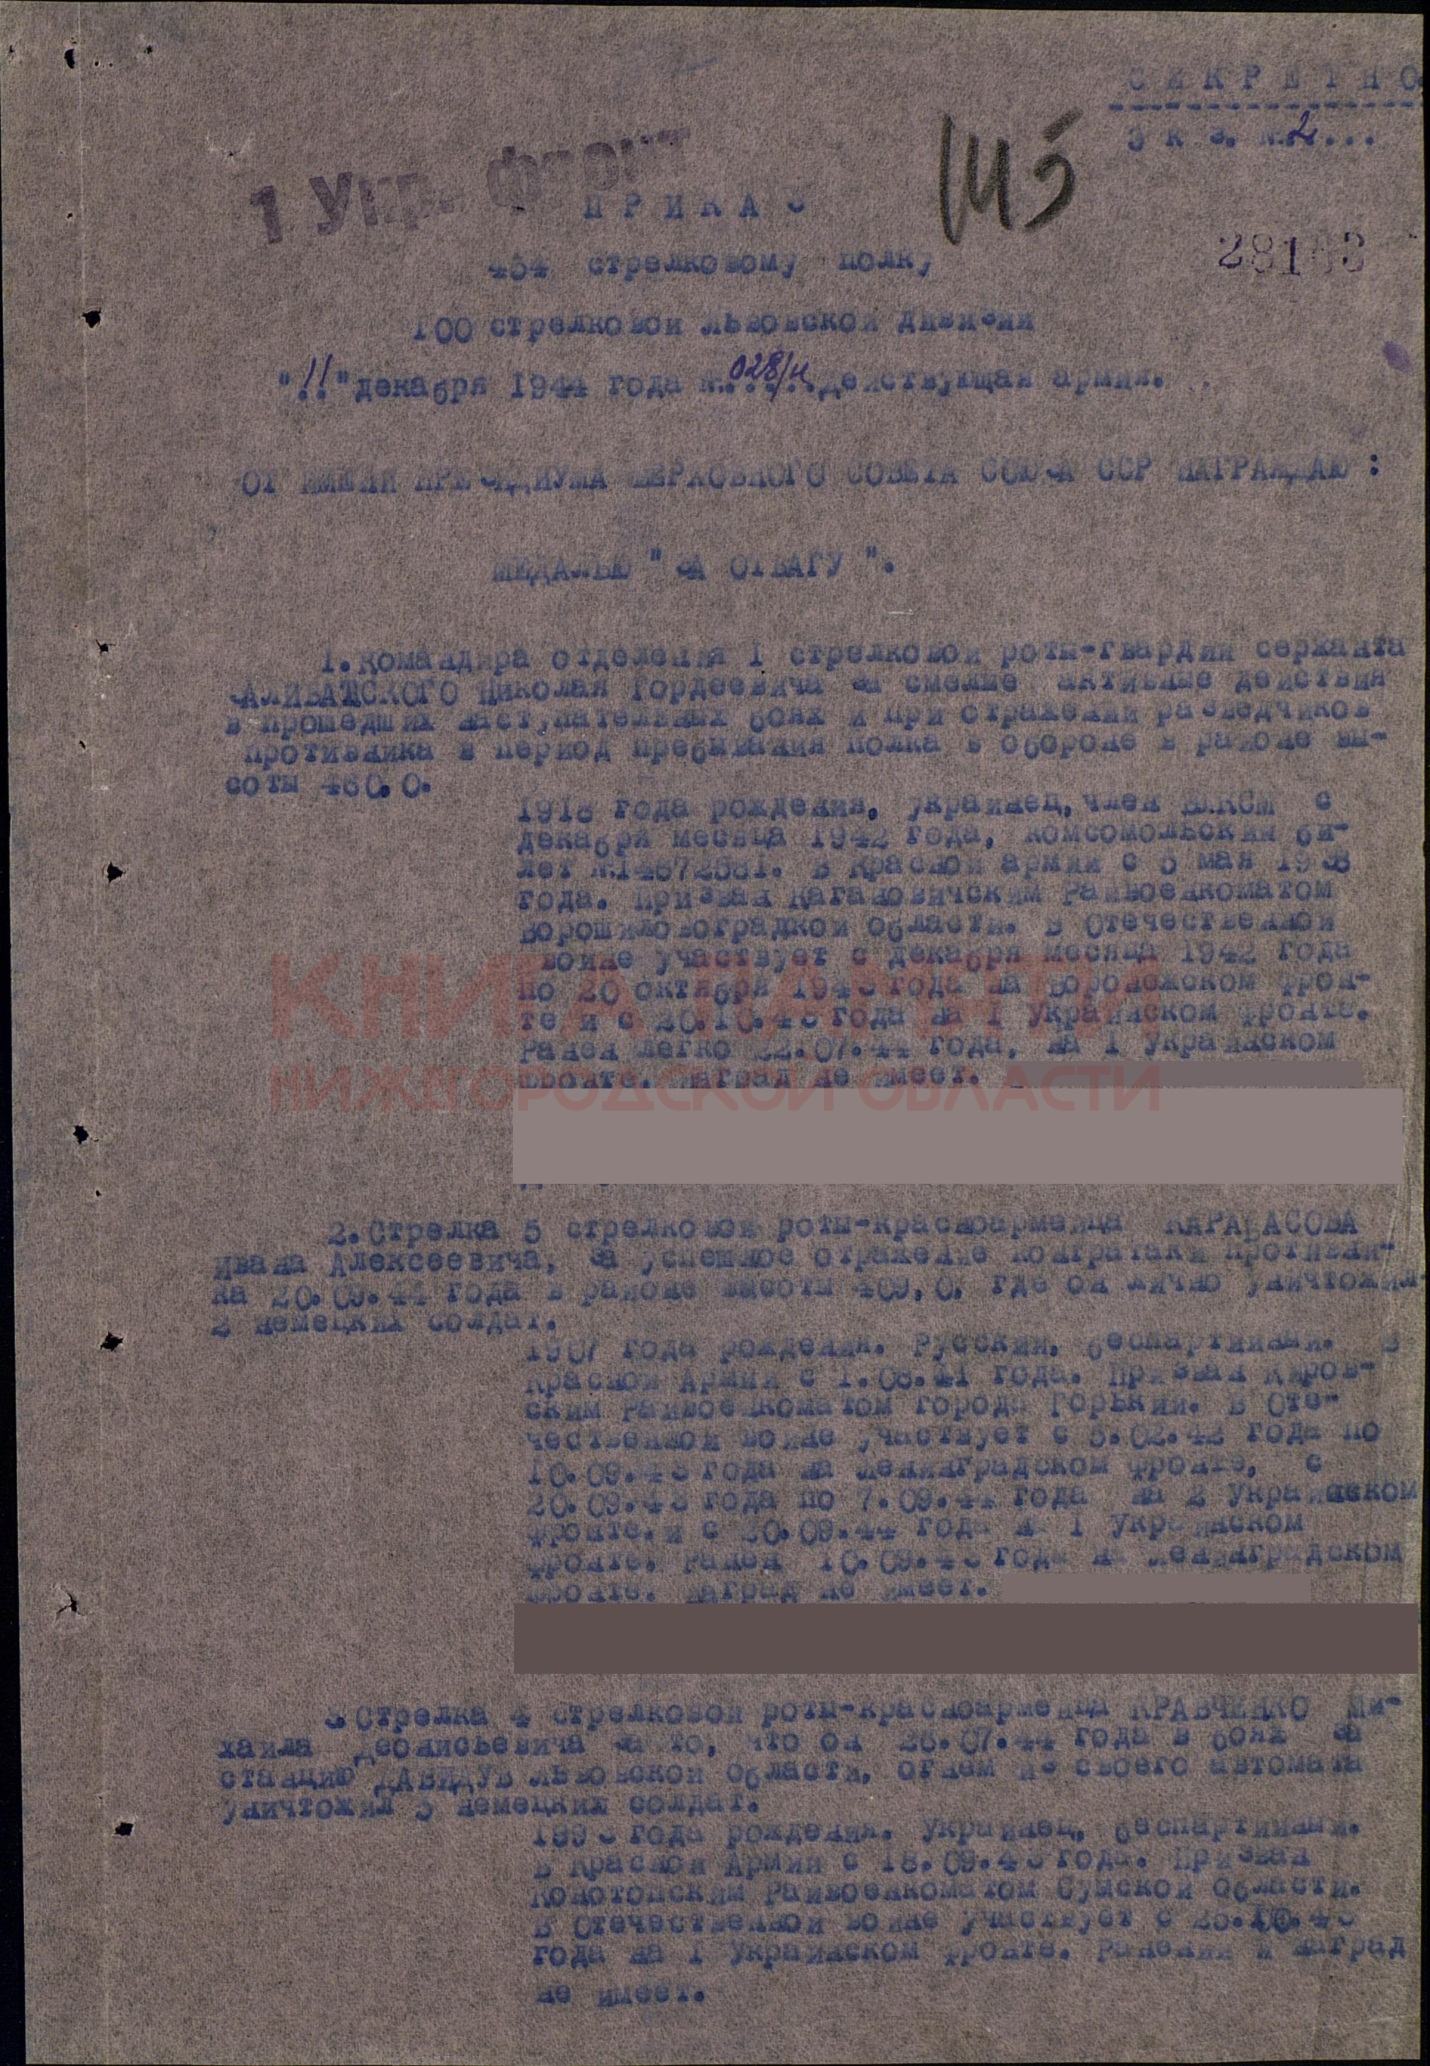 СЕКРЕТНО
Экз. №.2...
1 Укр. фронт
115
ПРИКАЗ
28163
454 стрелковому полку
100 стрелковой Львовской дивизии
"11" декабря 1944 года №.028/н..действующая армия.
ОТ ИМЕНИ ПРЕЗИДИУМА ВЕРХОВНОГО СОВЕТА СОЮЗА ССР НАГРАЖДАЮ:
МЕДАЛЬЮ "ЗА ОТВАГУ".
1. Командира отделения 1 стрелковой роты-гвардии сержанта
Николая Гордеевича за смелые активные действия
в прошедших наступательных боях и при отражении разведчиков
противника в период пребывания полка в обороне в районе вы-
соты 460.0.
1918 года рождения, украинец, член ВЛКСМ с
декабря месяца 1942 года, комсомольский би-
лет В Красной армии с 5 мая 1938
года. Призван Кагановичским Райвоенкоматом
Ворошиловоградкой области. В Отечественной
войне участвует с декабря месяца 1942 года
по 20 октября 1943 года на Воронежском фрон-
те и с 20.10.43 года на 1 Украинском фронте.
Ранен легко 22.07.44 года, на 1 Украинском
фронте. Наград не имеет.
КНИГА ПАМЯТИ
НИЖЕГОРОДСКОЙ ОБЛАСТИ
2. Стрелка 5 стрелковой роты-красноармейца КАРАБАСОВА
Ивана Алексеевича, за успешное отражение контратаки противни-
ка 20.09.44 года в районе высоты 409,0, где он лично уничтожил
2 немецких солдат.
1907 года рождения. Русский, беспартийный. В
Красной Армии с 1.08.41 года. Призван Киров-
ским Райвоенкоматом города Горький. В Оте-
чественной войне участвует с 5.02.42 года по
10.09.43 года на Ленинградском фронте, с
20.09.43 года по 7.09.44 года на 2 Украинском
фронте. и с 20.09.44 года на 1 Украинском
фронте. Ранен 10.09.43 года на Ленинградском
фронте. Наград не имеет.
3 Стрелка 4 стрелковой роты-красноармейца КРАВЧЕНКО Ми-
хаила Деонисьевича за то, что он 26.07.44 года в боях за
станцию ДАВИДУВ Львовской области, огнем из своего автомата
уничтожил 3 немецких солдат.
1893 года рождения. Украинец, беспартийный.
В Красной Армии с 18.09.43 года. Призван
Конотопским Райвоенкоматом Сумской области.
В Отечественной войне участвует с
года на 1 Украинском фронте. Ранений и наград
не имеет.